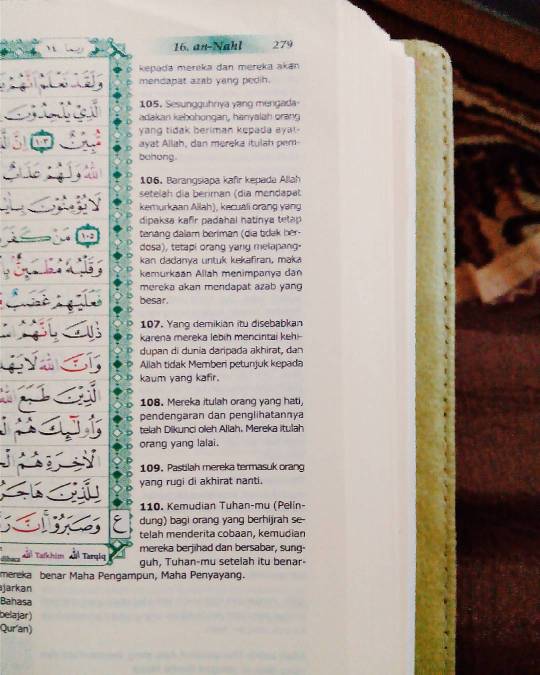 ربما ١٤
16. an-Nahl
279
وَلَقَدْ نَعْلَمُ أَنَّهُمْ
الَّذِي يُلْحِدُونَ
مُّبِينٌ ١٠٣ إِنَّ
اللَّهُ وَلَهُمْ عَذَابٌ
لَا يُؤْمِنُونَ
١٠٥ مَن كَفَرَ
وَقَلْبُهُ مُطْمَئِنٌّ
فَعَلَيْهِمْ غَضَبٌ
ذَٰلِكَ بِأَنَّهُمُ
وَأَنَّ اللَّهَ لَا
الَّذِينَ طَبَعَ اللَّهُ
وَأُولَٰئِكَ هُمُ
الْآخِرَةِ هُمُ
لِلَّذِينَ هَاجَرُوا
وَصَبَرُوا إِنَّ
ع
الله Tafkhim الله Tarqiq
kepada mereka dan mereka akan
mendapat azab yang pedih.
105. Sesungguhnya yang mengada-
adakan kebohongan, hanyalah orang
yang tidak beriman kepada ayat-
ayat Allah, dan mereka itulah pem-
bohong.
106. Barangsiapa kafir kepada Allah
setelah dia beriman (dia mendapat
kemurkaan Allah), kecuali orang yang
dipaksa kafir padahal hatinya tetap
tenang dalam beriman (dia tidak ber-
dosa), tetapi orang yang melapang-
kan dadanya untuk kekafiran, maka
kemurkaan Allah menimpanya dan
mereka akan mendapat azab yang
besar.
107. Yang demikian itu disebabkan
karena mereka lebih mencintai kehi-
dupan di dunia daripada akhirat, dan
Allah tidak Memberi petunjuk kepada
kaum yang kafir.
108. Mereka itulah orang yang hati,
pendengaran dan penglihatannya
telah Dikunci oleh Allah. Mereka itulah
orang yang lalai.
109. Pastilah mereka termasuk orang
yang rugi di akhirat nanti.
110. Kemudian Tuhan-mu (Pelin-
dung) bagi orang yang berhijrah se-
telah menderita cobaan, kemudian
mereka berjihad dan bersabar, sung-
guh, Tuhan-mu setelah itu benar-
benar Maha Pengampun, Maha Penyayang.
mereka
ajarkan
Bahasa
belajar)
Qur'an)